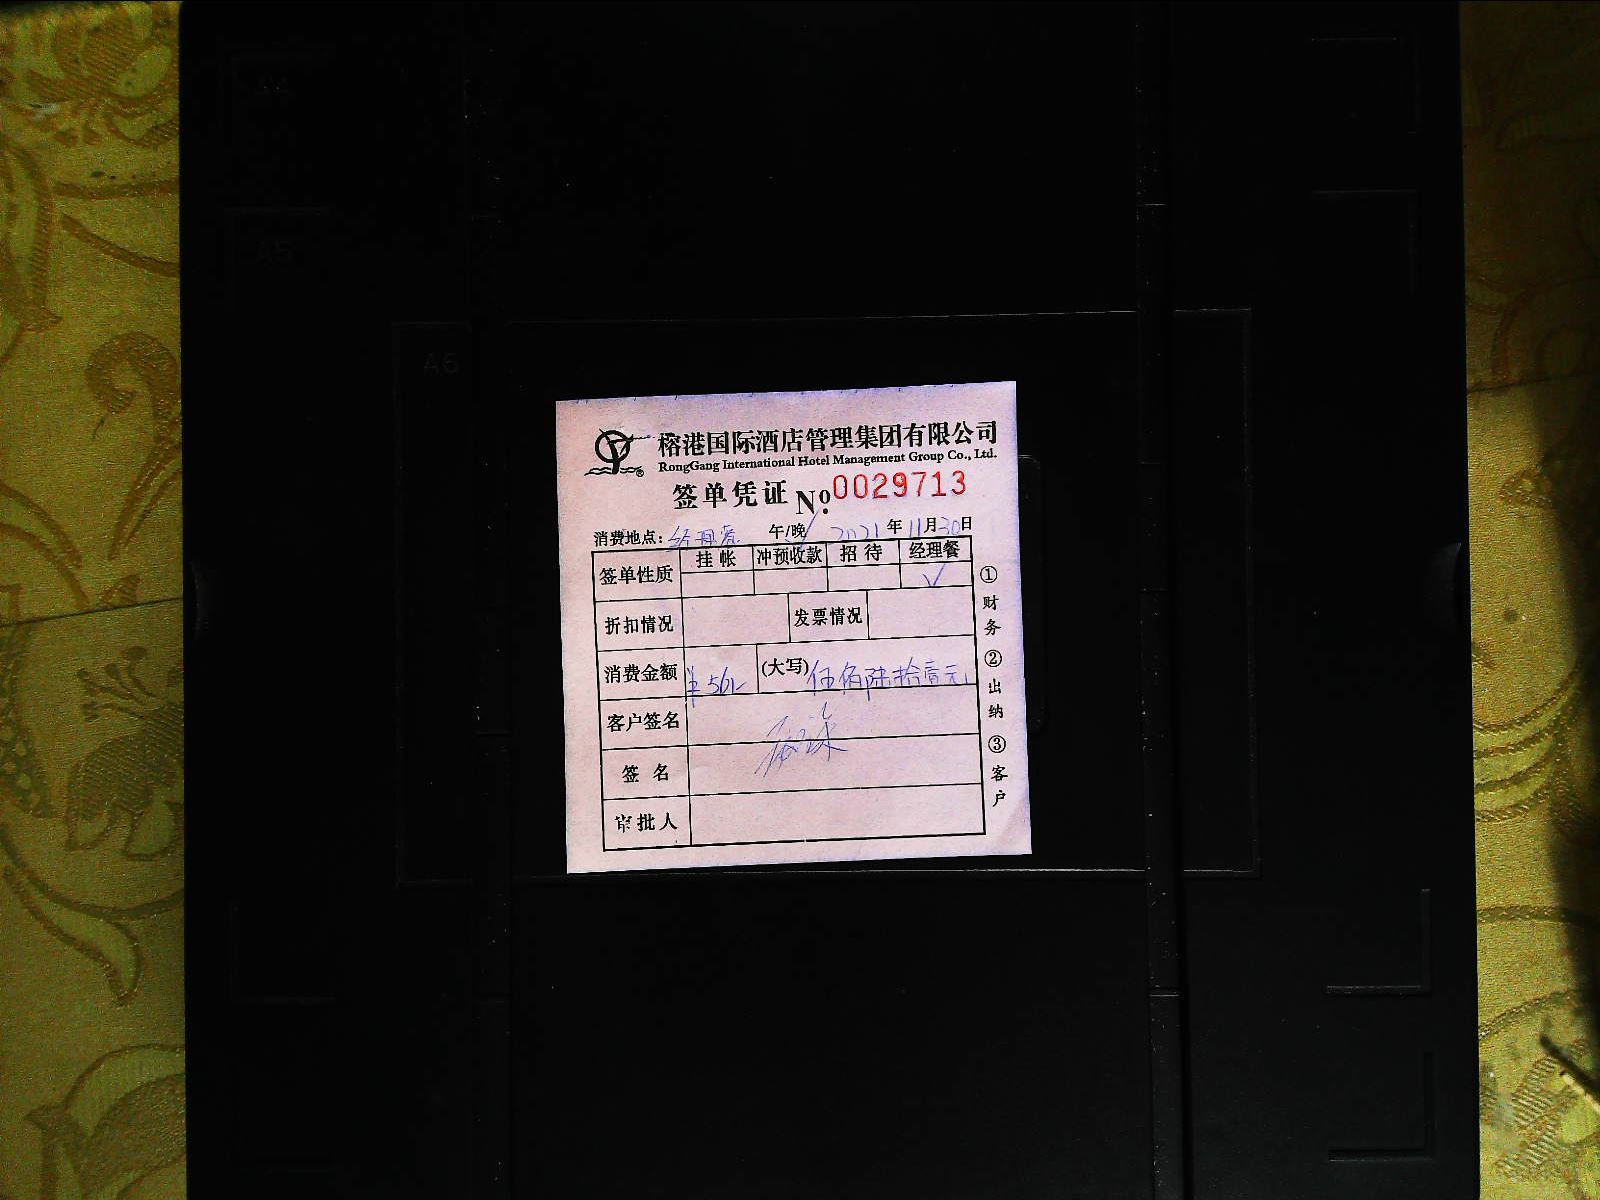 A5
A6
榕港国际酒店管理集团有限公司
RongGang International Hotel Management Group Co., Ltd.
签单凭证 No. 0029713
消费地点: 午/晚 2021年11月30日
签单性质 挂帐 冲预收款 招待 经理餐
√
折扣情况 发票情况
消费金额 ¥561 (大写) 伍佰陆拾壹元
客户签名
签名
审批人
①财务 ②出纳 ③客户